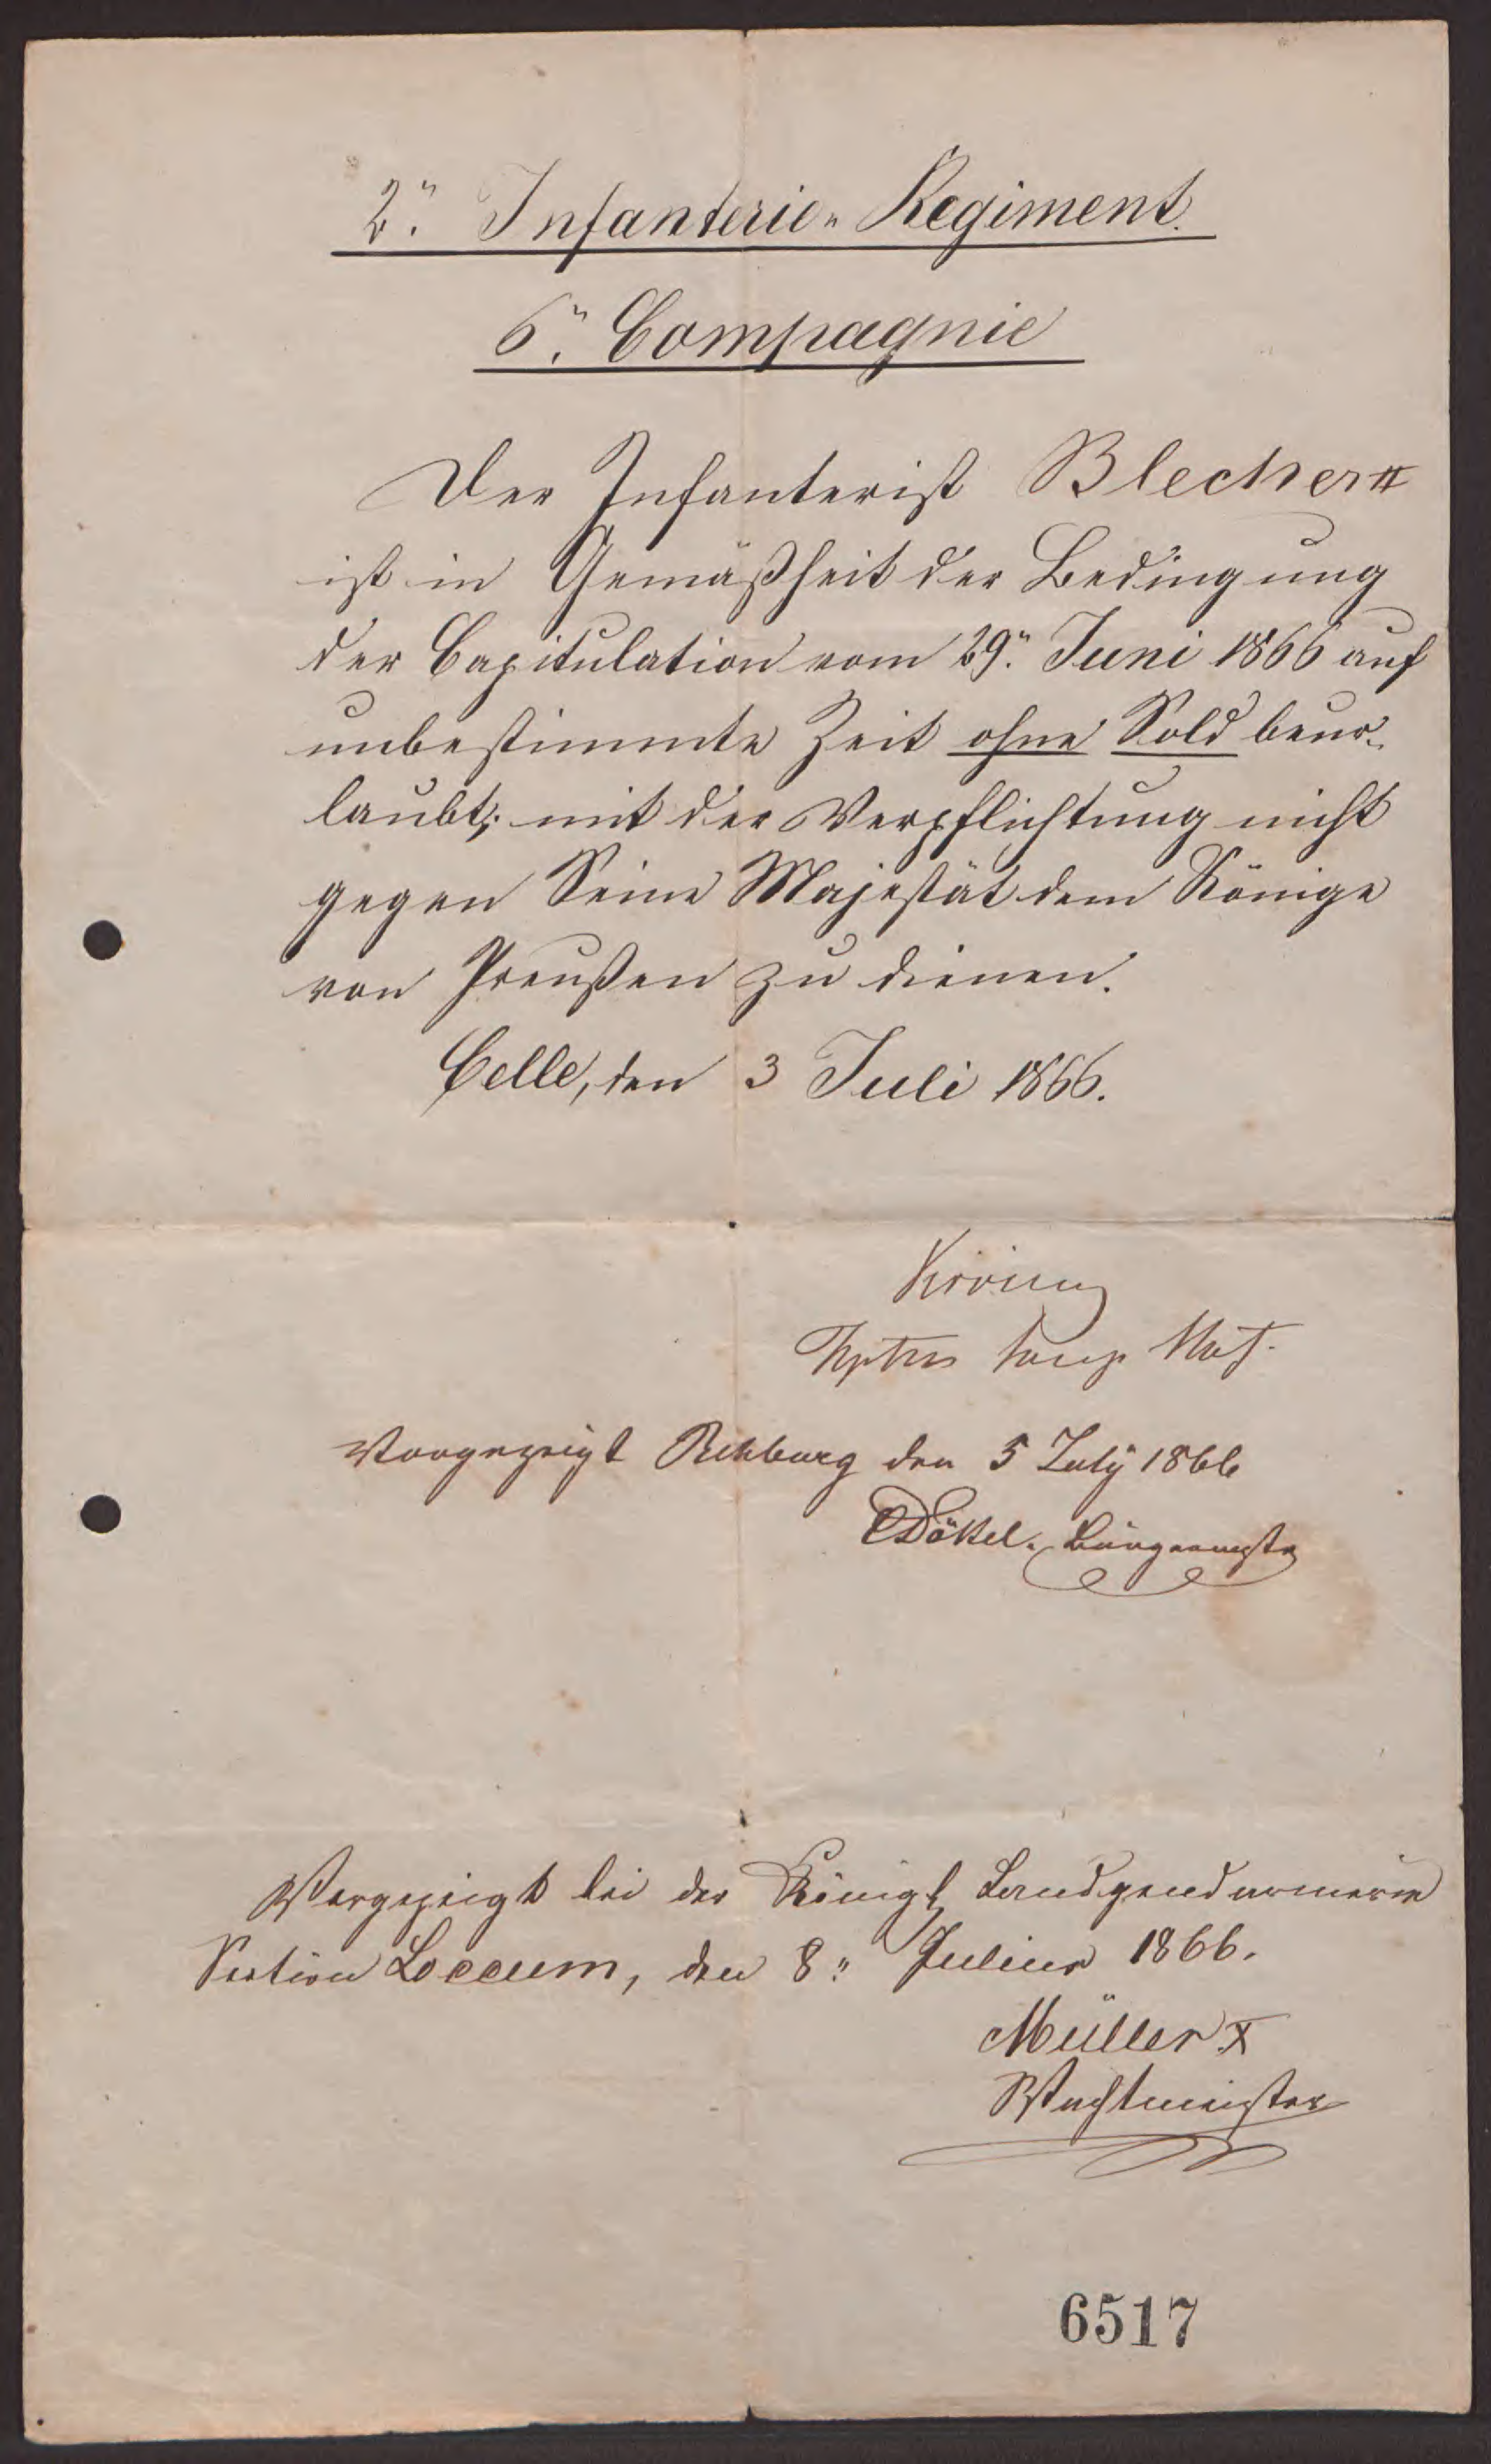 2". Infanterie-Regiment.
6". Compagnie
Der Infanterist Blecher II
ist in Gemäßheit der Bedingung
der Capitulation vom 29". Juni 1866 auf
unbestimmte Zeit ohne Sold beur-
laubt; mit der Verpflichtung nicht
gegen Seine Majestät dem Könige
von Preußen zu dienen.
Celle, den 3 Juli 1866.
Vorgezeigt Rehburg den 5 July 1866
Dökel. Bürgermstr
Vorgezeigt bei der Königl Landgendarmerie
Section Loccum, den 8" Julius 1866.
Müller I
Wachtmeister
6517